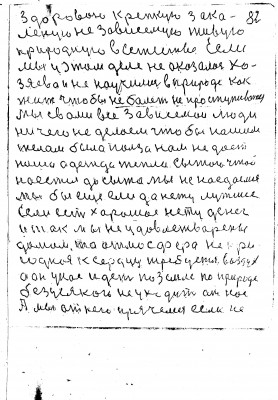 здоровою крепкую зака- 82
ленную независемую живую
природную в естестве Если
мы у этом деле не оказалоз хо-
зяева и не научимы в природе как
жить чтобы не болеть не простуживаться
Мы с вами все Зависемои люди
ничего не делаем чтобы нашим
телам была польза нам не даст
наша одежда тепла сытой чтой
наестся до сыта мы не наедаемся
мы бы еще ели да нету лутшее
Если есть хорошае нету денег
и так мы не удовлетварены
домом, та атмосфера не при
годная к сердцу требуется воздух
а он у нас идет по земле по природе
без всякого неуходит от нас
А мы от него прячемся если не